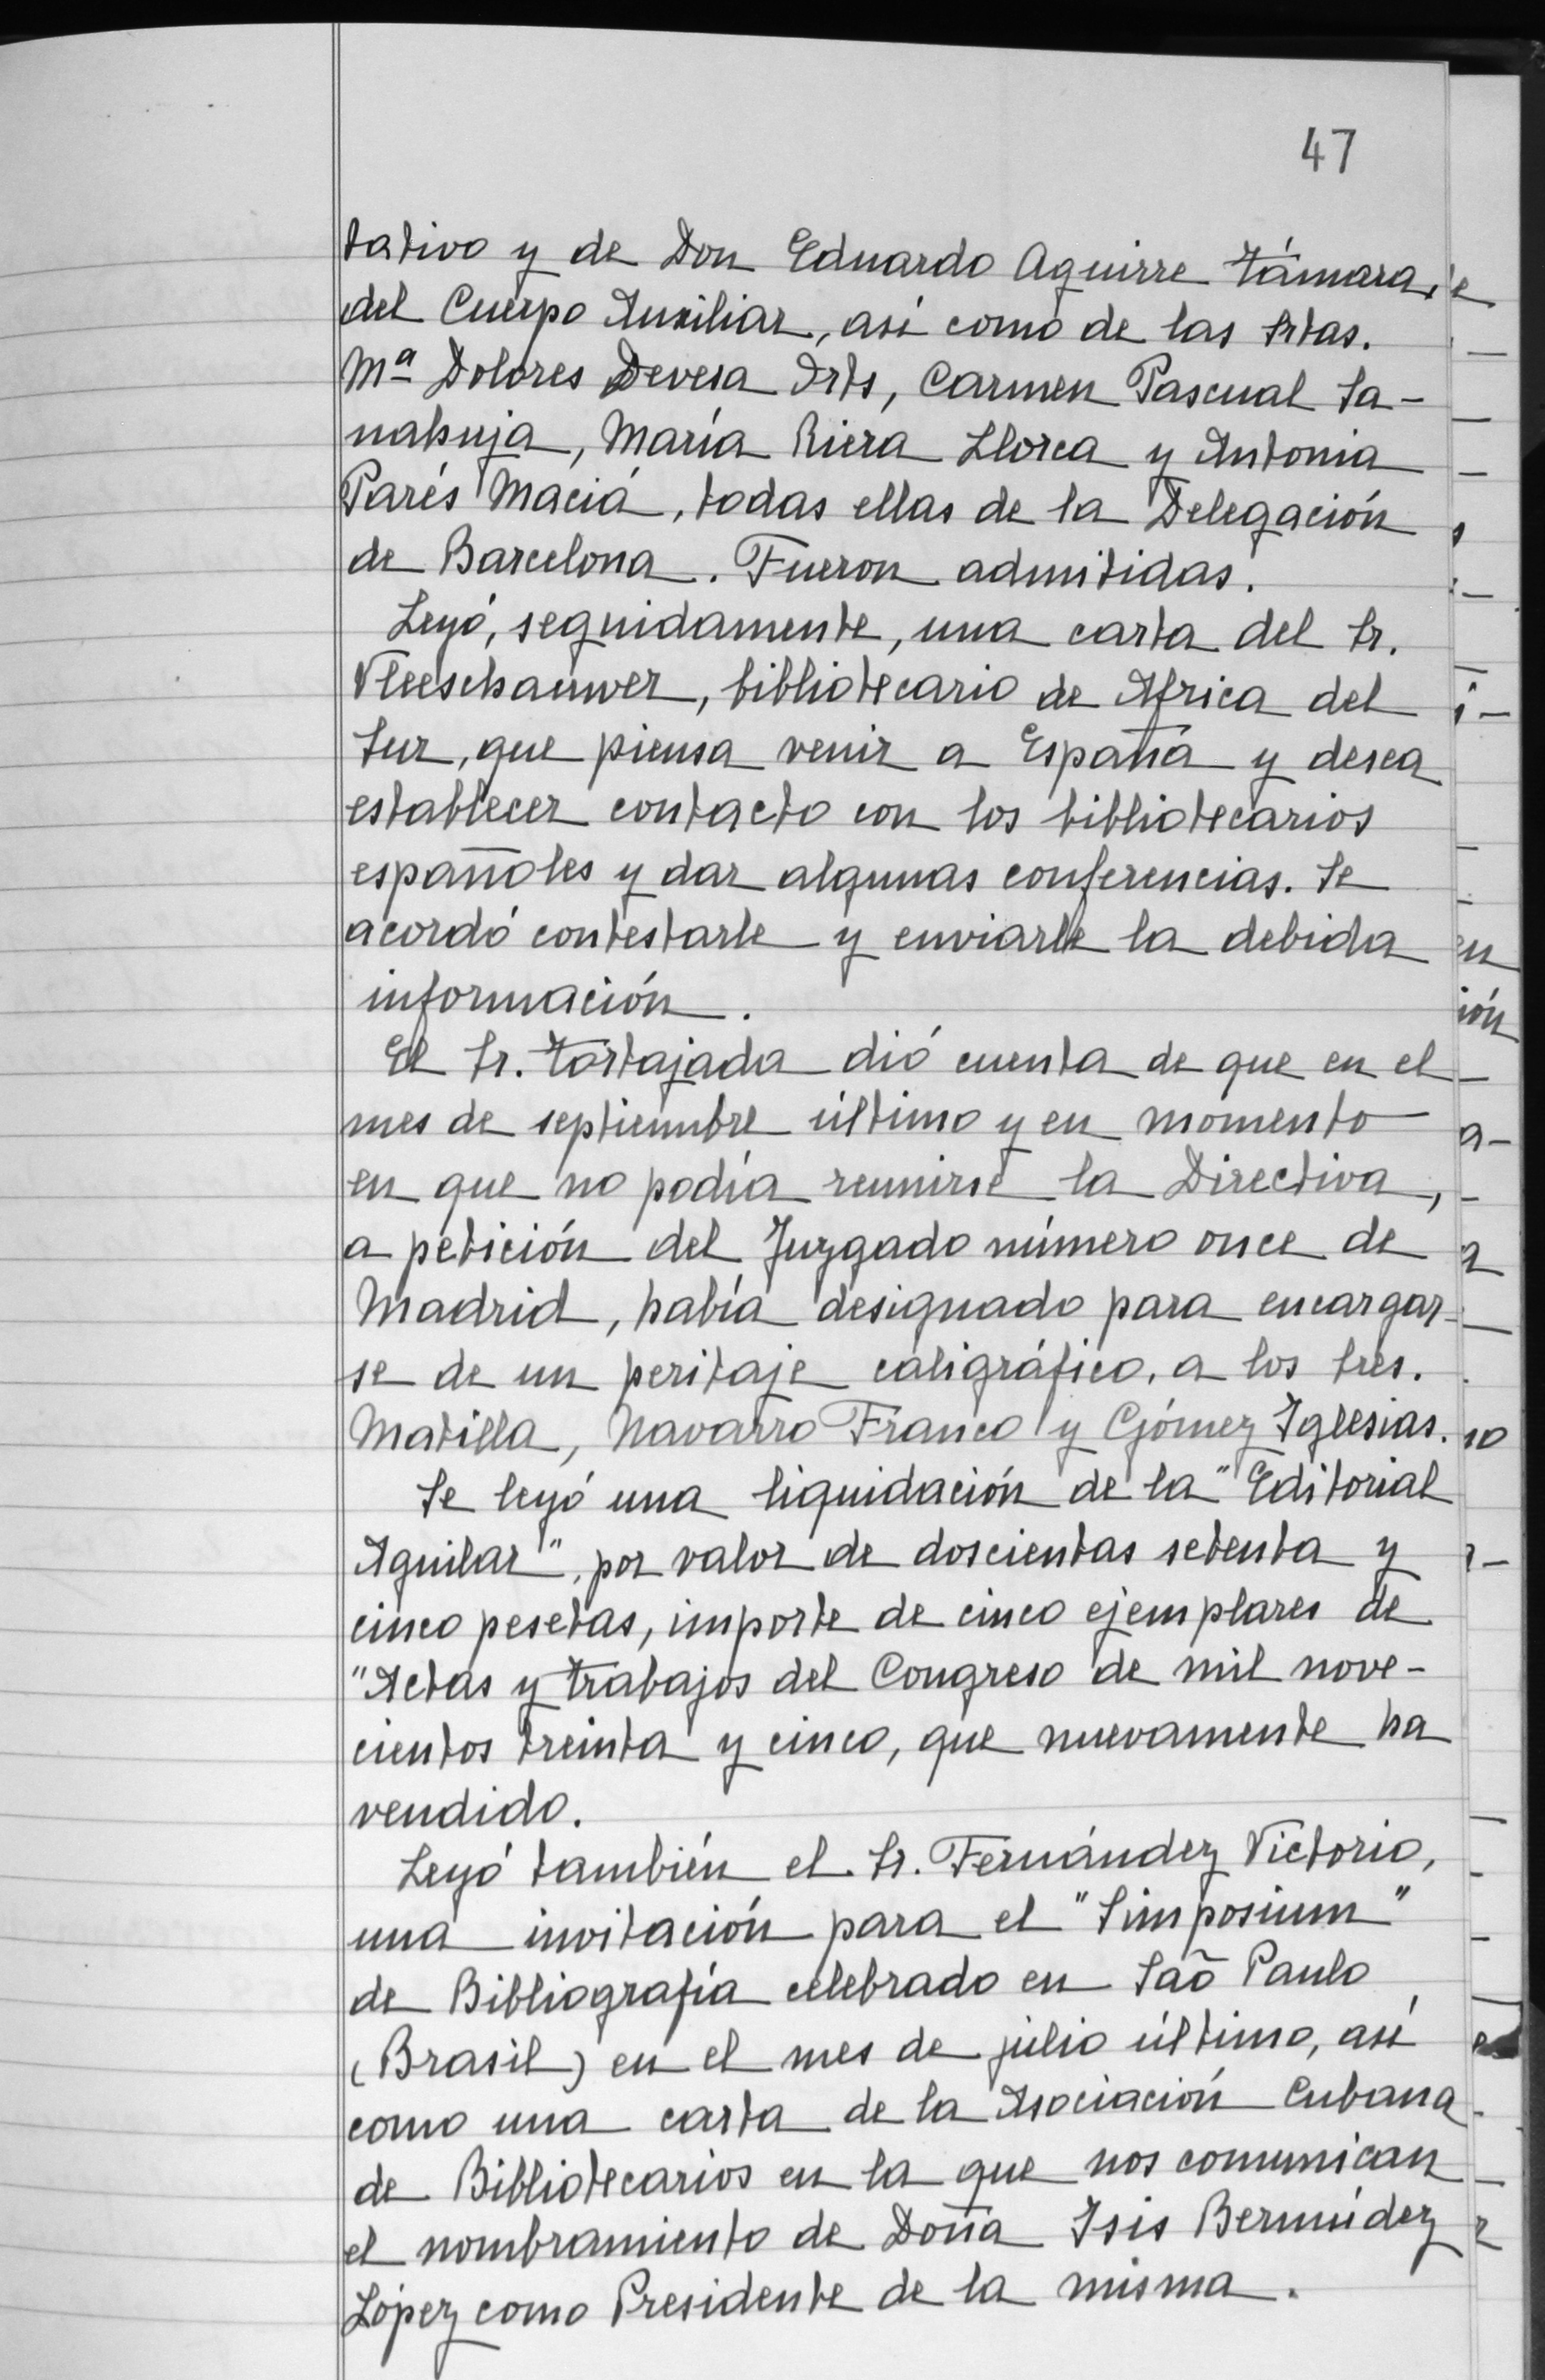 47
tativo y de Don Eduardo Aguirre Támara,
del Cuerpo Auxiliar, así como de las Srtas.
Mª Dolores Devesa Orts, Carmen Pascual Sa-
nahuja, María Riera Llorca y Antonia
Parés Maciá, todas ellas de la Delegación
de Barcelona. Fueron admitidas.
Leyó, seguidamente, una carta del Sr.
Vleeschauwer, bibliotecario de Africa del
Sur, que piensa venir a España y desea
establecer contacto con los bibliotecarios
españoles y dar algunas conferencias. Se
acordó contestarle y enviarle la debida
información.
El Sr. Tortajada dió cuenta de que en el
mes de septiembre último y en momento
en que no podía reunirse la Directiva,
a petición del Juzgado número once de
Madrid, había designado para encargar-
se de un peritaje caligráfico, a los Sres.
Matilla, Navarro Franco y Gómez Iglesias.
Se leyó una liquidación de la "Editorial
Aguilar", por valor de doscientas setenta y
cinco pesetas, importe de cinco ejemplares de
"Actas y trabajos del Congreso de mil nove-
cientos treinta y cinco, que nuevamente ha
vendido.
Leyó también el Sr. Fernández Victorio,
una invitación para el "Simposium"
de Bibliografía celebrado en Saõ Paulo
(Brasil) en el mes de julio último, así
como una carta de la Asociación Cubana
de Bibliotecarios en la que nos comunican
el nombramiento de Doña Isis Bermúdez
López como Presidente de la misma.